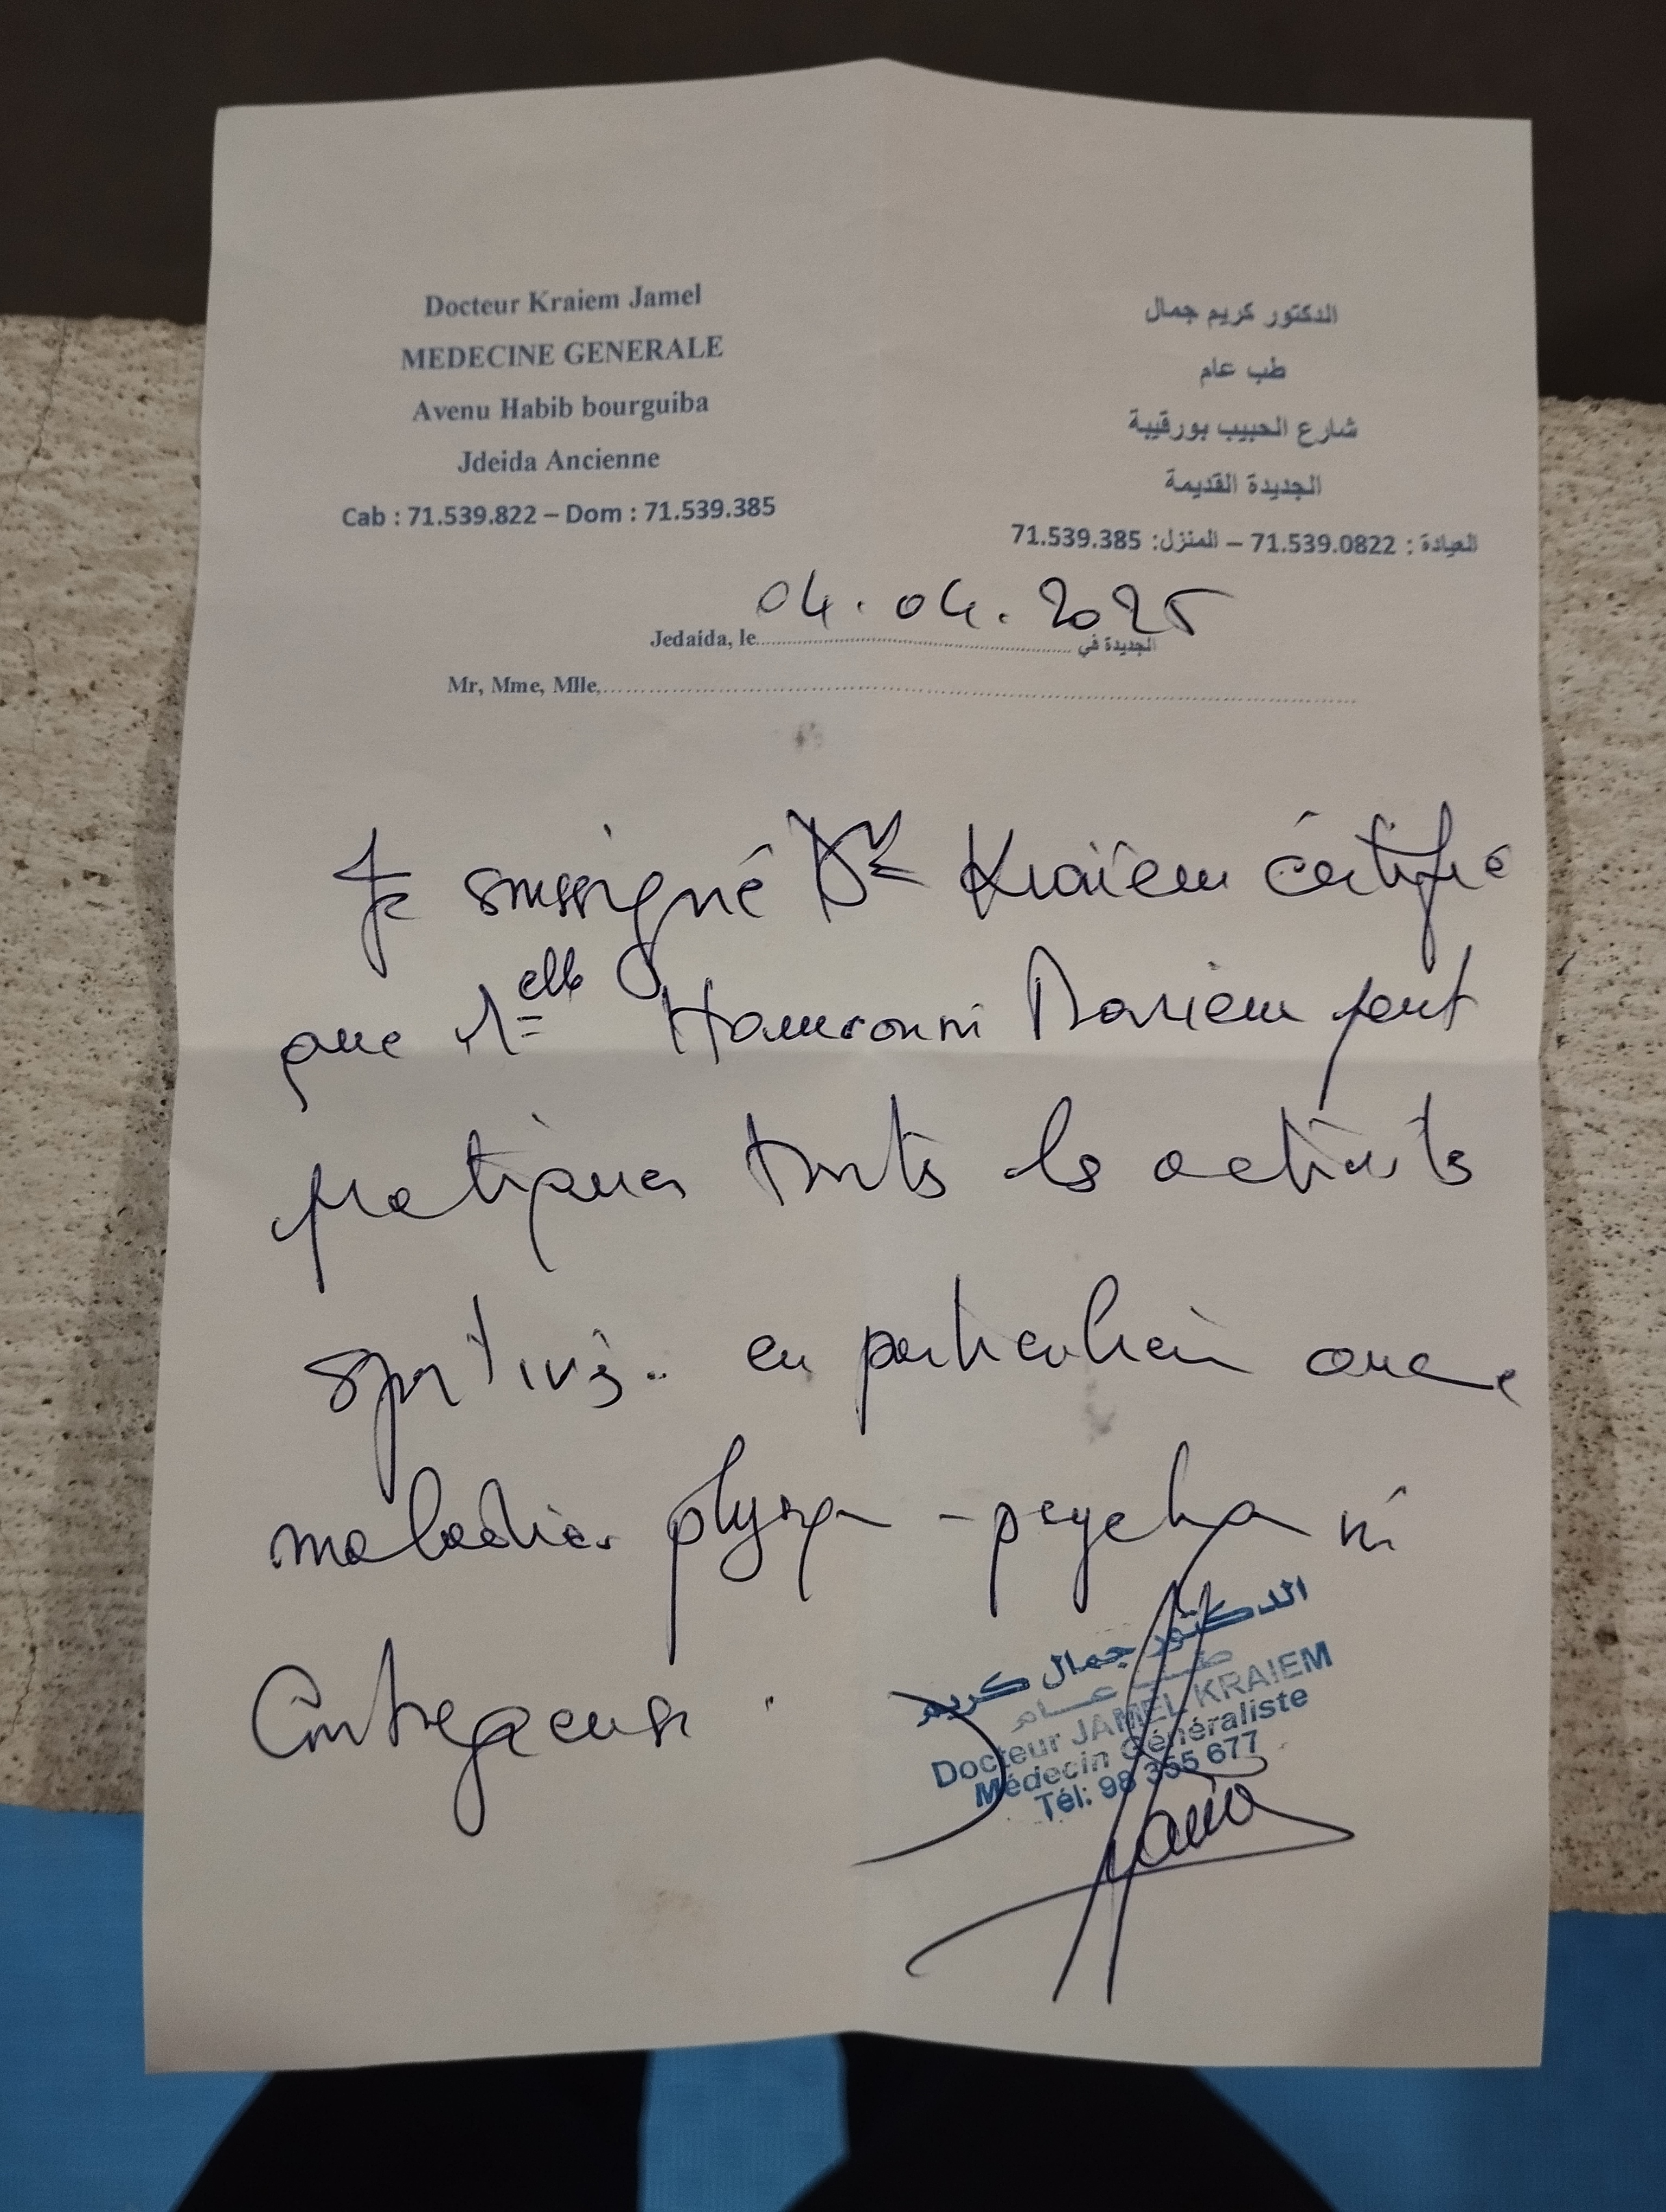 Docteur Kraiem Jamel
MEDECINE GENERALE
Avenu Habib bourguiba
Jdeida Ancienne
Cab : 71.539.822 – Dom : 71.539.385
الدكتور كريم جمال
طب عام
شارع الحبيب بورقيبة
الجديدة القديمة
العيادة : 71.539.0822 – المنزل: 71.539.385
04.04.2025
Jedaida, le الجديدة في
Mr, Mme, Mlle,
Je soussigné Dr Kraïem certifie
que Melle Hamrouni Mariem peut
pratiquer touts les activités
sportives.. en particulier
maladies physiq - psycho ni
Contagieuse.
الدكتور جمال كريم
طب عام
Docteur JAMEL KRAIEM
Médecin Généraliste
Tél: 98 355 677